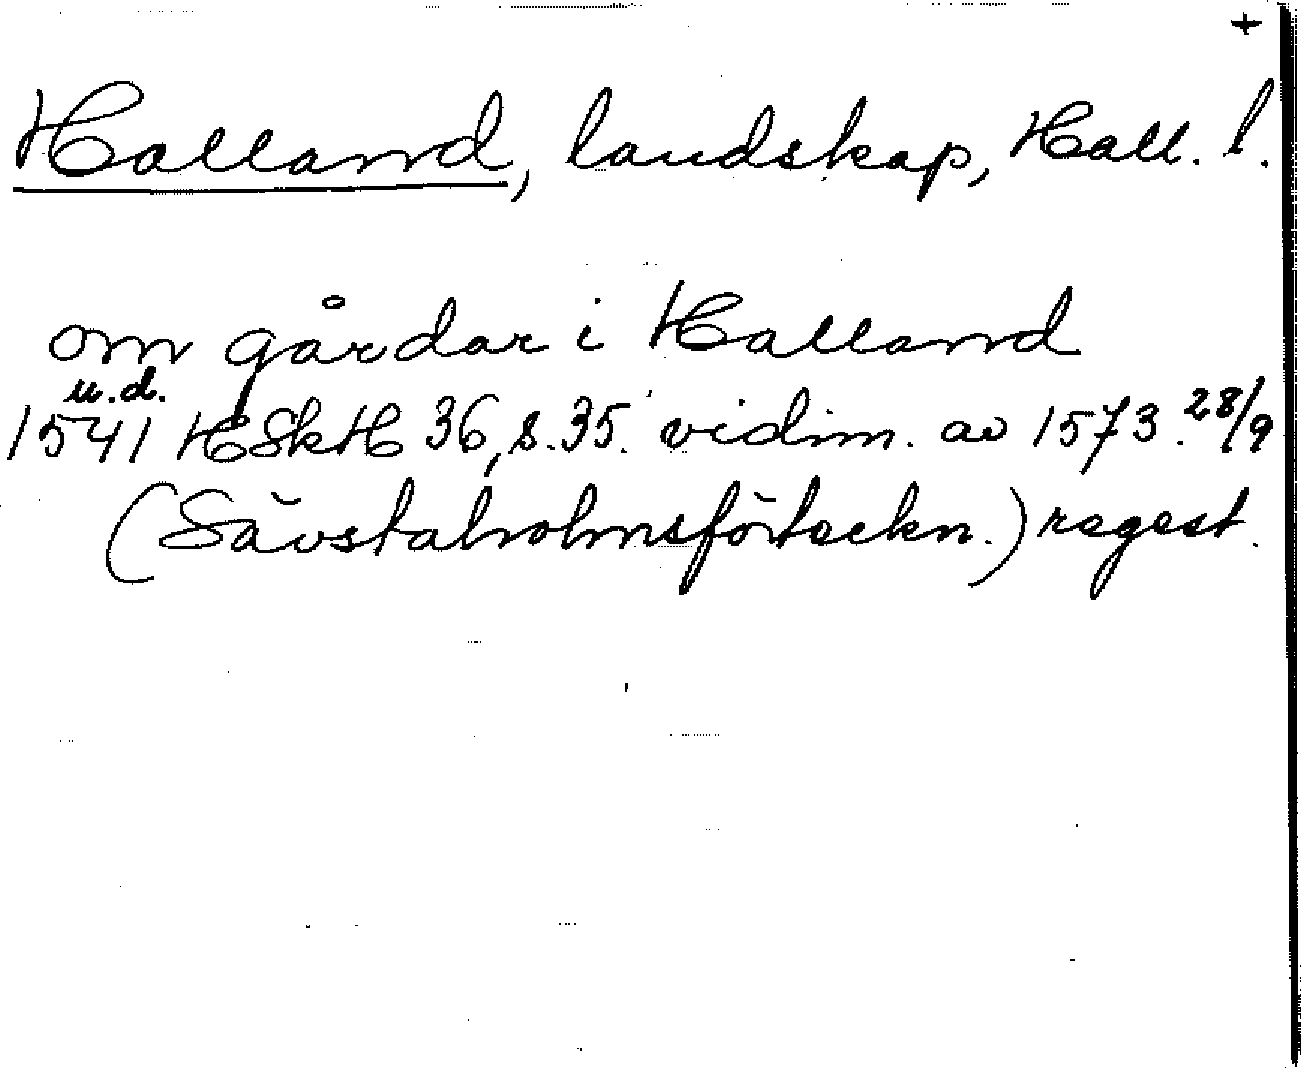 +
Halland, landskap, Hall. l.
om gårdar i Halland
u.d.
1541 HSkH 36, s. 35. vidim. av 1573. 28/9
(Sävstaholmsförteckn.) regest.